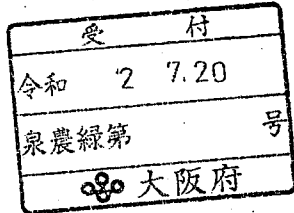 受付
令和 2 7.20
泉農緑第 号
大阪府